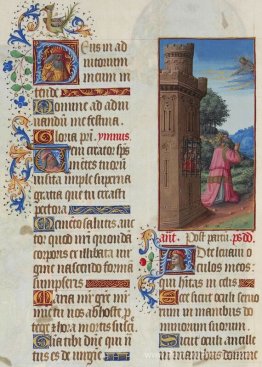 Eus in ad
iutorium
meum in
tende
Domine ad adiu
uandū me festina.
Gloria pr̄i. ymnus.
Eni creator sp̄s
mētes tuorū
uisita imple superna
gratia que tu creasti
pectora
Memēto salutis auc
tor quod nr̄i quondā
corporis ex illibata uir
gine nascendo formā
sumpseris
Maria mr̄ gr̄e mr̄
mie tu nos ab hoste p
tege & hora mortis suscipe
Gloria tibi dn̄e qui na
tus es de uirgīe
ant. Post partū. ps. Dd
D te leuaui o
culos meos:
qui hitas in celis
Ecce sicut oculi seruo
rum in manibus do
minorum suorum.
Sicut oculi ancille
in manibus domine